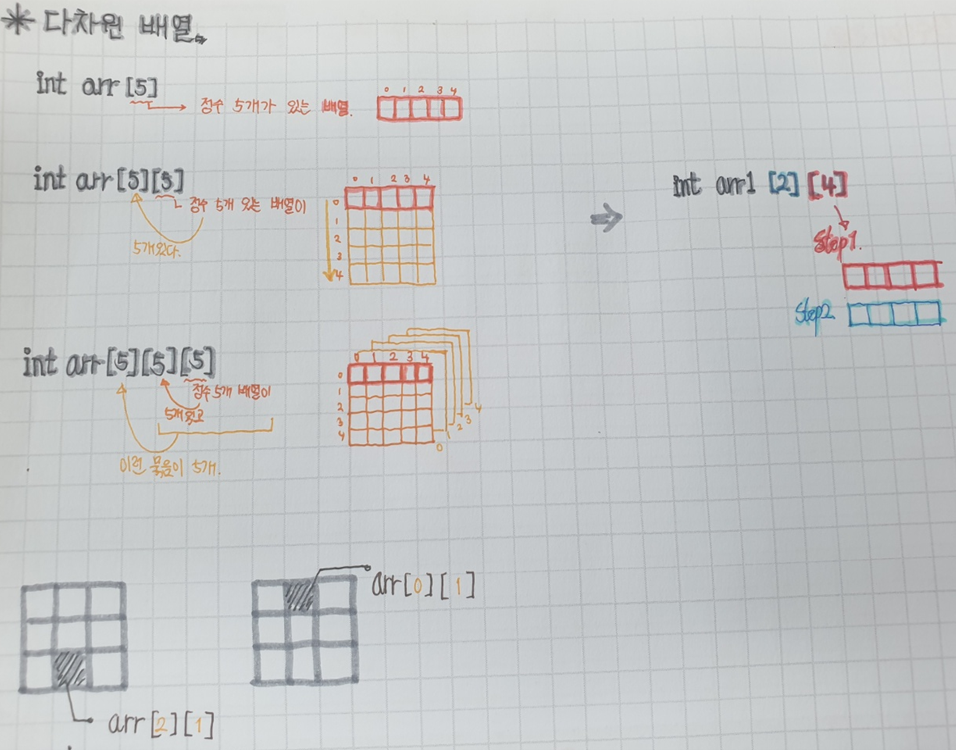 * 다차원 배열.
int arr[5]
정수 5개가 있는 배열.
0 1 2 3 4
int arr[5][5]
정수 5개 있는 배열이
5개있다.
0 1 2 3 4
0
1
2
3
4
int arr1 [2] [4]
Step1.
Step2
int arr[5][5][5]
정수 5개 배열이
5개 있고
이런 묶음이 5개.
0 1 2 3 4
0
1
2
3
4
0 1 2 3 4
arr[0][1]
arr[2][1]